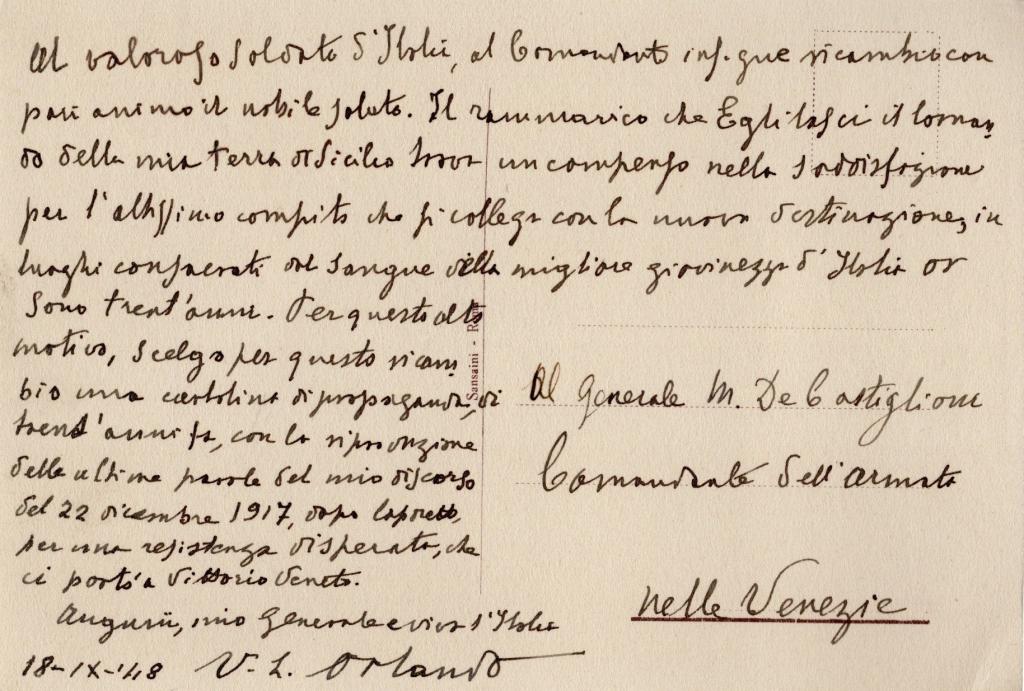 Al valoroso soldato d'Italia, al Comandante insigne ricambio con
pari animo il nobile saluto. Il rammarico che Egli lasci il Coman-
do della mia terra di Sicilia trova un compenso nella soddisfazione
per l'altissimo compito che si collega con la nuova destinazione, in
luoghi consacrati dal sangue della migliore giovinezza d'Italia or
sono trent'anni. Per questo alto
motivo, scelgo per questo ricam-
bio una cartolina di propaganda, di
trent'anni fa, con la riproduzione
delle ultime parole del mio discorso
del 22 dicembre 1917, dopo Caporetto,
per una resistenza disperata, che
ci portò a Vittorio Veneto.
Augurii, mio Generale e viva l'Italia
18-IX-'48 V. E. Orlando
Sansaini - Roma
Al Generale M. De Castiglioni
Comandante dell'armata
nelle Venezie